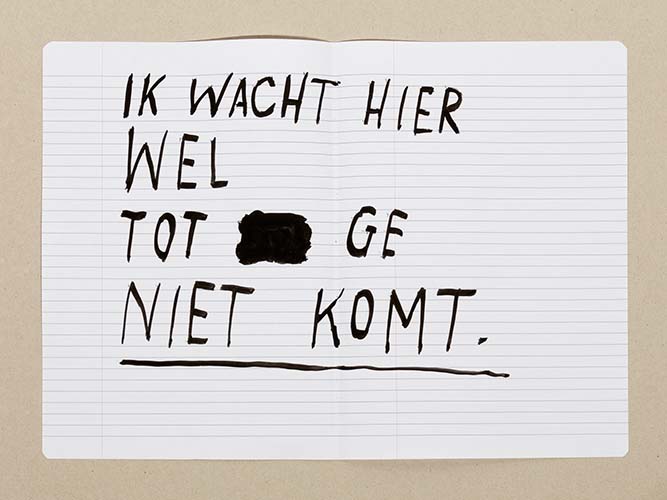 IK WACHT HIER
WEL
TOT GE
NIET KOMT.